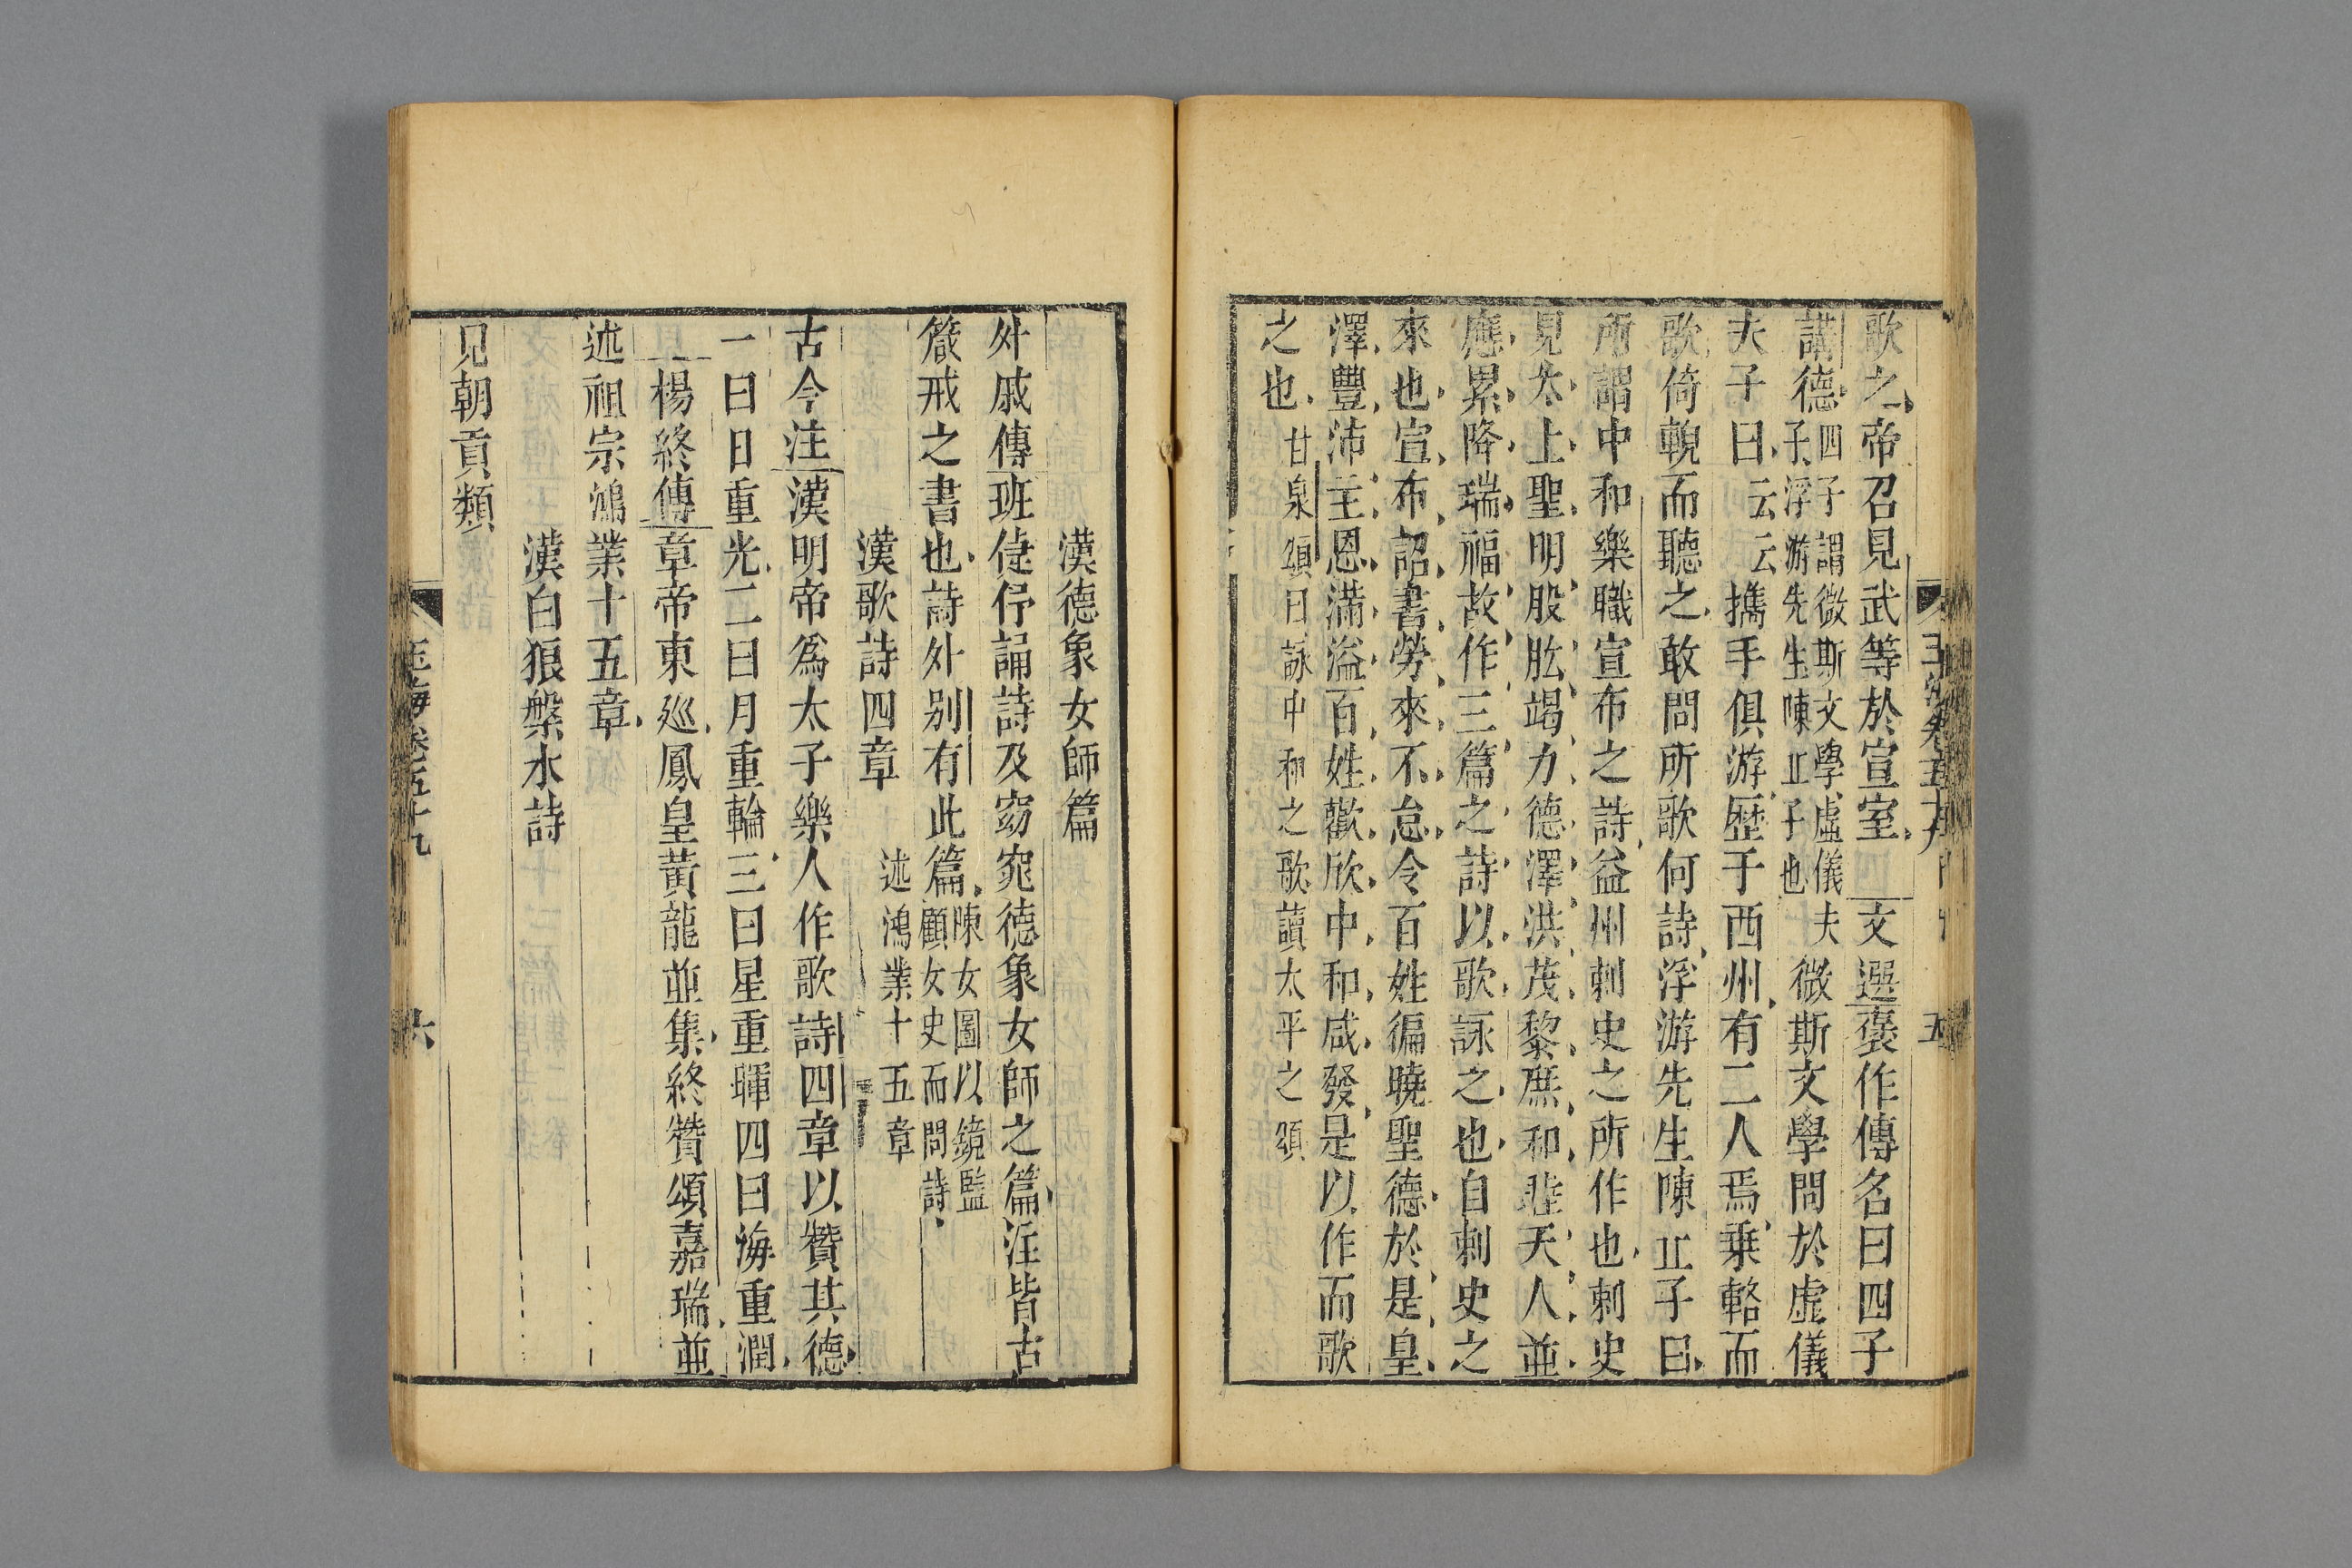 玉海卷五十九 五
歌之帝召見武等於宣室文選褒作傳名曰四子
講德四子謂微斯文學虛儀夫
子浮游先生陳丘子也微斯文學問於虛儀
夫子曰云云㩦手俱游歷于西州有二人焉乘輅而
歌倚輗而聽之敢問所歌何詩浮游先生陳丘子曰
所謂中和樂職宣布之詩益州刺史之所作也刺史
見太上聖明股肱竭力德澤洪茂黎庶和睦天人並
應累降瑞福故作三篇之詩以歌詠之也自刺史之
來也宣布詔書勞來不怠令百姓徧曉聖德於是皇
澤豐沛主恩滿溢百姓歡欣中和感發是以作而歌
之也甘泉頌曰詠中和之歌讀太平之頌
漢德象女師篇
外戚傳班倢伃誦詩及窈窕德象女師之篇注皆古
箴戒之書也詩外别有此篇陳女圖以鏡監
顧女史而問詩
漢歌詩四章 述鴻業十五章
古今注漢明帝爲太子樂人作歌詩四章以贊其德
一曰日重光二曰月重輪三曰星重暉四曰海重潤
楊終傳章帝東巡鳳皇黃龍並集終贊頌嘉瑞並
述祖宗鴻業十五章
漢白狼槃木詩
見朝貢類
玉海卷五十九 六